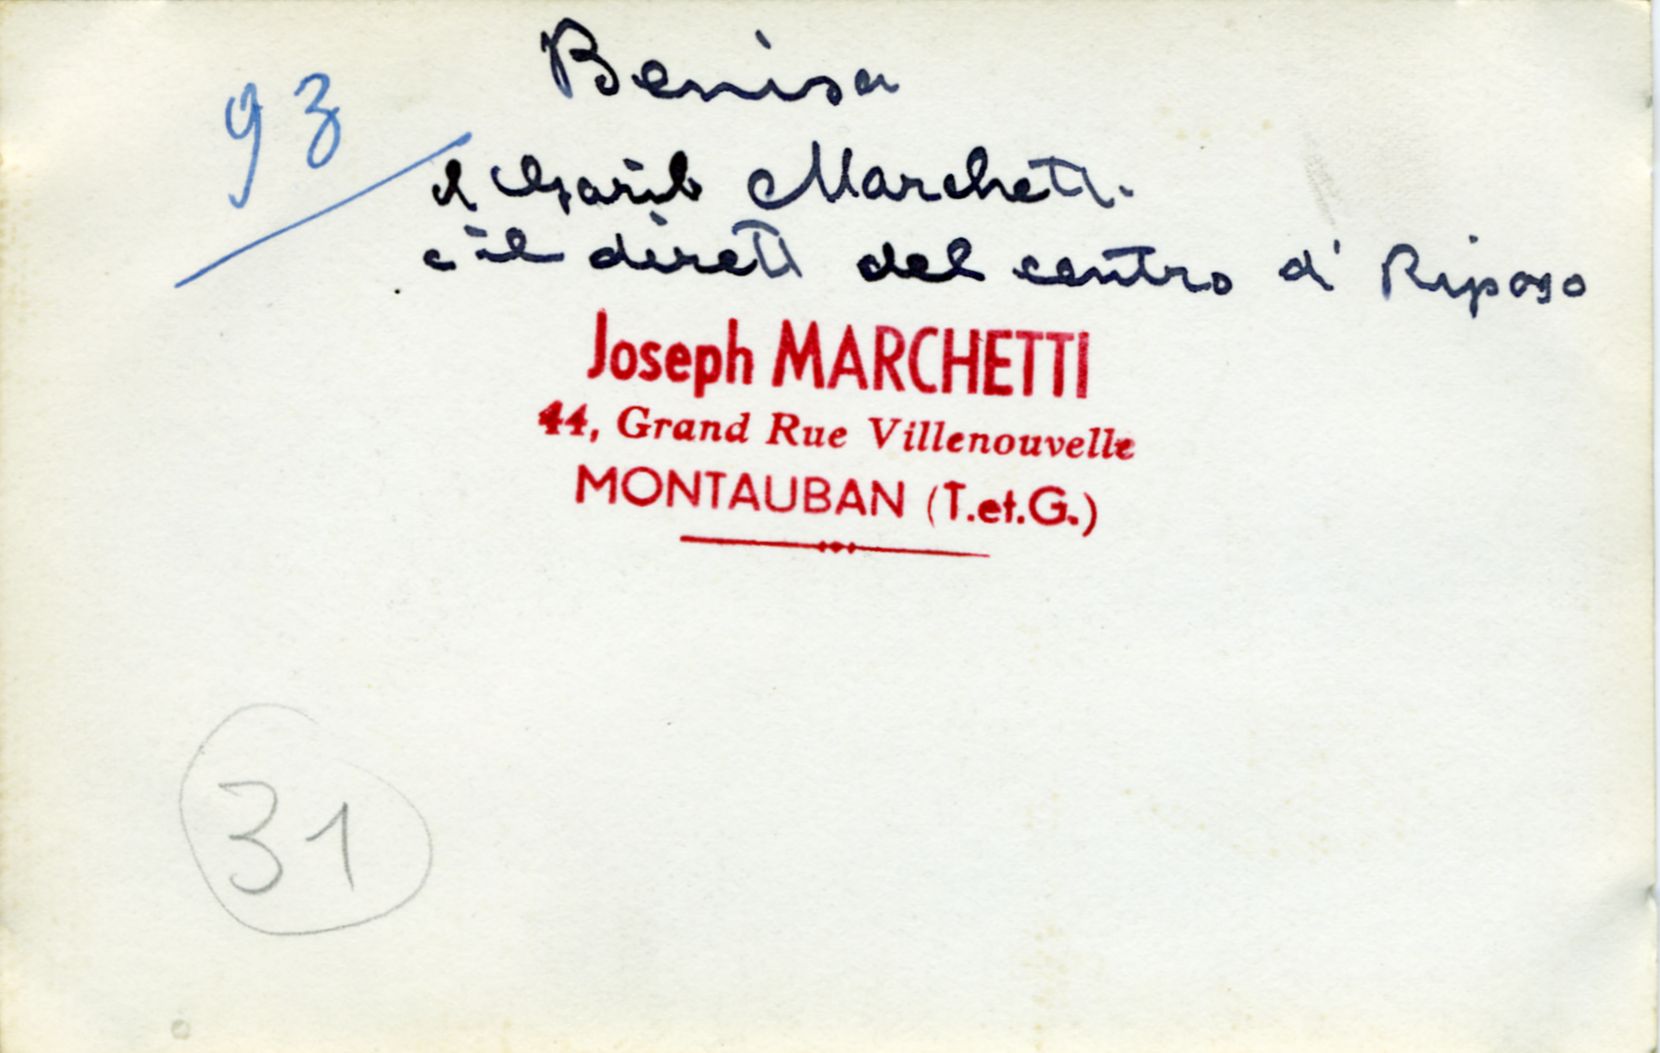 93
Benisa
Marchetti
e il dirett del centro d' Riposo
Joseph MARCHETTI
44, Grand Rue Villenouvelle
MONTAUBAN (T.et.G.)
31